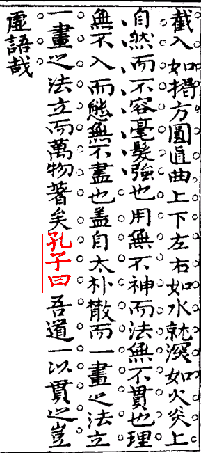 截入如揭方圓直曲上下左右如水就深如火炎上
自然而不容毫髮強也用無不神而法無不貫也理
無不入而態無不盡也蓋自太朴散而一畫之法立
一畫之法立而萬物著矣孔子曰吾道一以貫之豈
虛語哉